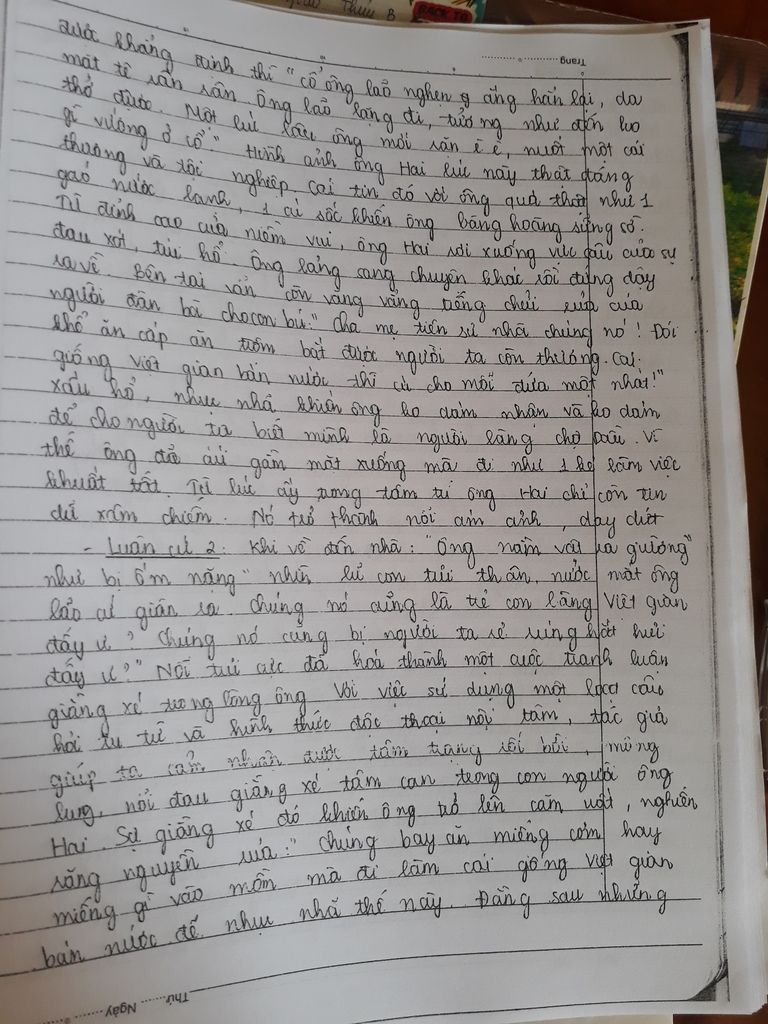 Thúy B
BACK TO
Trang
được khẳng định thì "cổ ông lão nghẹn ắng hẳn lại, da
mặt tê rân rân. Ông lão lặng đi, tưởng như đến ko
thở được. Một lúc lâu ông mới rặn è è, nuốt một cái
gì vướng ở cổ" Hình ảnh ông Hai lúc này thật đáng
thương và tội nghiệp. Cái tin đó với ông quả thật như 1
gáo nước lạnh, 1 cú sốc khiến ông bàng hoàng sững sờ.
Từ đỉnh cao của niềm vui, ông Hai rơi xuống vực sâu của sự
đau xót, tủi hổ. Ông lảng sang chuyện khác rồi đứng dậy
ra về. Bên tai vẫn còn vang vẳng tiếng chửi rủa của
người đàn bà cho con bú: "Cha mẹ tiên sư nhà chúng nó! Đói
khổ ăn cắp ăn trộm bắt được người ta còn thương. Cái
giống Việt gian bán nước thì cứ cho mỗi đứa một nhát!"
xấu hổ, nhục nhã khiến ông ko dám nhận và ko dám
để cho người ta biết mình là người làng chợ Dầu. Vì
thế ông đã cúi gằm mặt xuống mà đi như 1 kẻ làm việc
khuất tất. Từ lúc ấy trong tâm trí ông Hai chỉ còn tin
dữ xâm chiếm. Nó trở thành nỗi ám ảnh, day dứt
- Luận cứ 2: Khi về đến nhà: "Ông nằm vật ra giường"
như bị ốm nặng" nhìn lũ con tủi thân, nước mắt ông
lão cứ giàn ra. Chúng nó cũng là trẻ con làng Việt gian
đấy ư? Chúng nó cũng bị người ta rẻ rúng hắt hủi
đấy ư?" Nỗi tủi cực đã hoá thành một cuộc tranh luận
giằng xé trong lòng ông. Với việc sử dụng một loạt câu
hỏi tu từ và hình thức độc thoại nội tâm, tác giả
giúp ta cảm nhận được tâm trạng rối bời, mông
lung, nỗi đau giằng xé tâm can trong con người ông
Hai. Sự giằng xé đó khiến ông trở lên căm uất, nghiến
răng nguyền rủa: "Chúng bay ăn miếng cơm hay
miếng gì vào mồm mà đi làm cái giống Việt gian
bán nước để nhục nhã thế này. Đằng sau những
Thứ Ngày